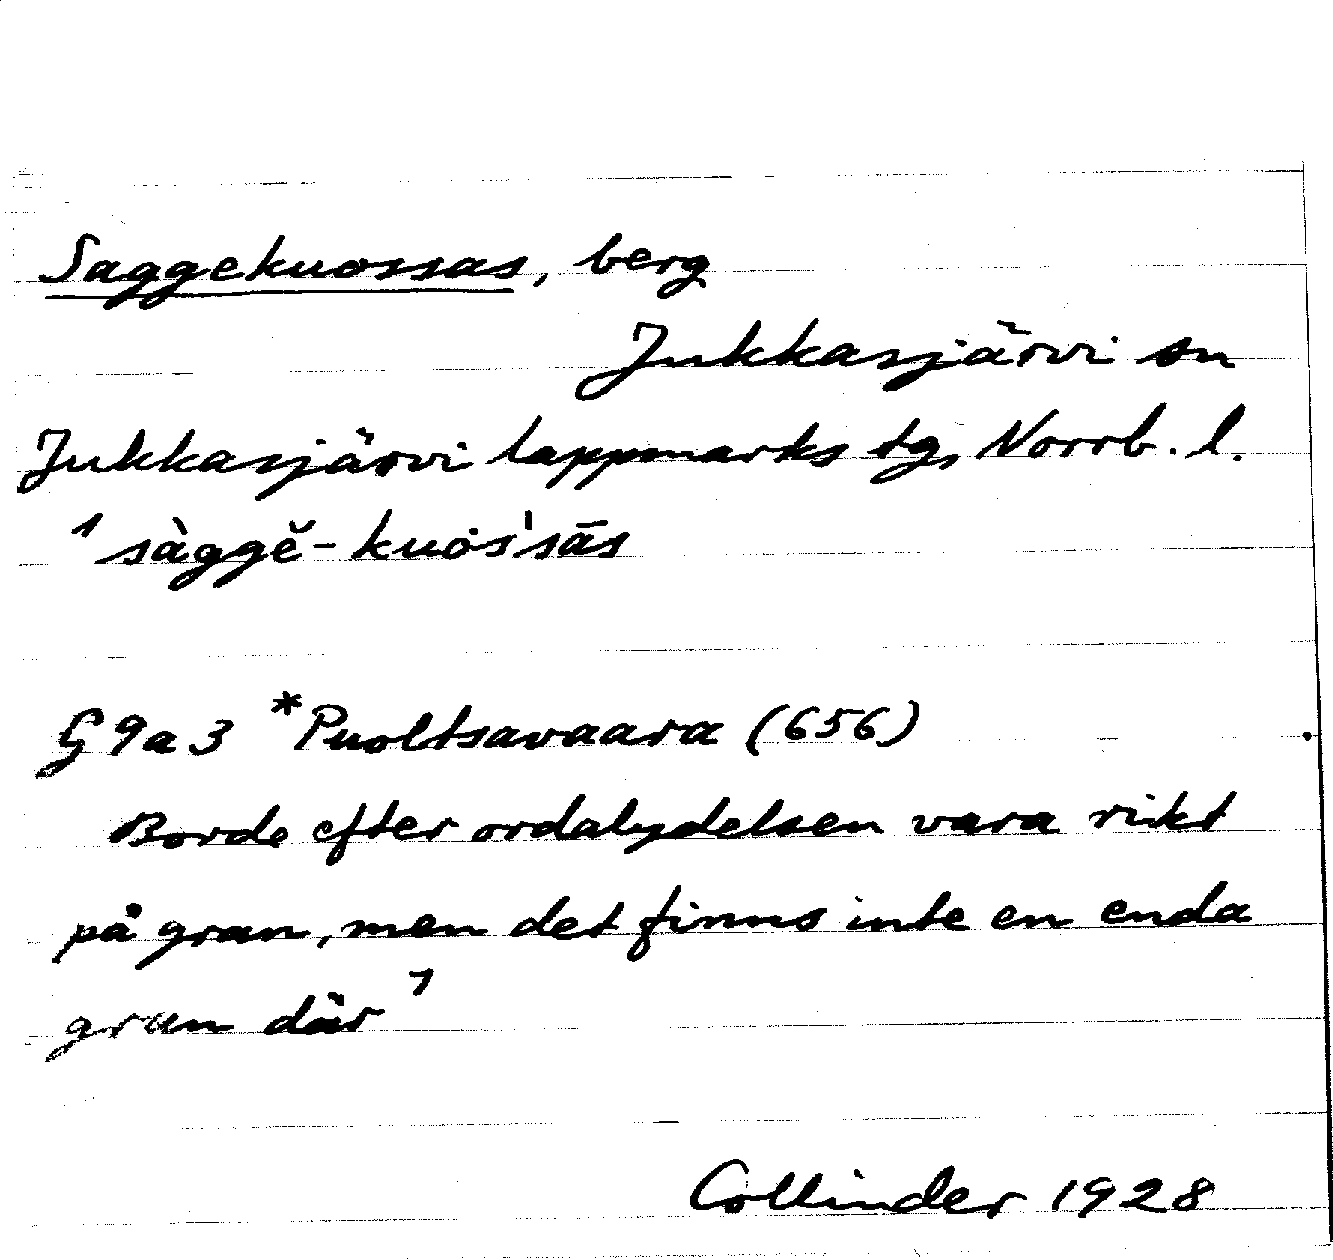 Saggekuossas, berg
Jukkasjärvi sn
Jukkasjärvi lappmarks tg, Norrb. l.
1 sàggĕ-kuȯs'sās
G9a3 *Puoltsavaara (656)
Borde efter ordalydelsen vara rikt
på gran, men det finns inte en enda
gran där 7
Collinder 1928